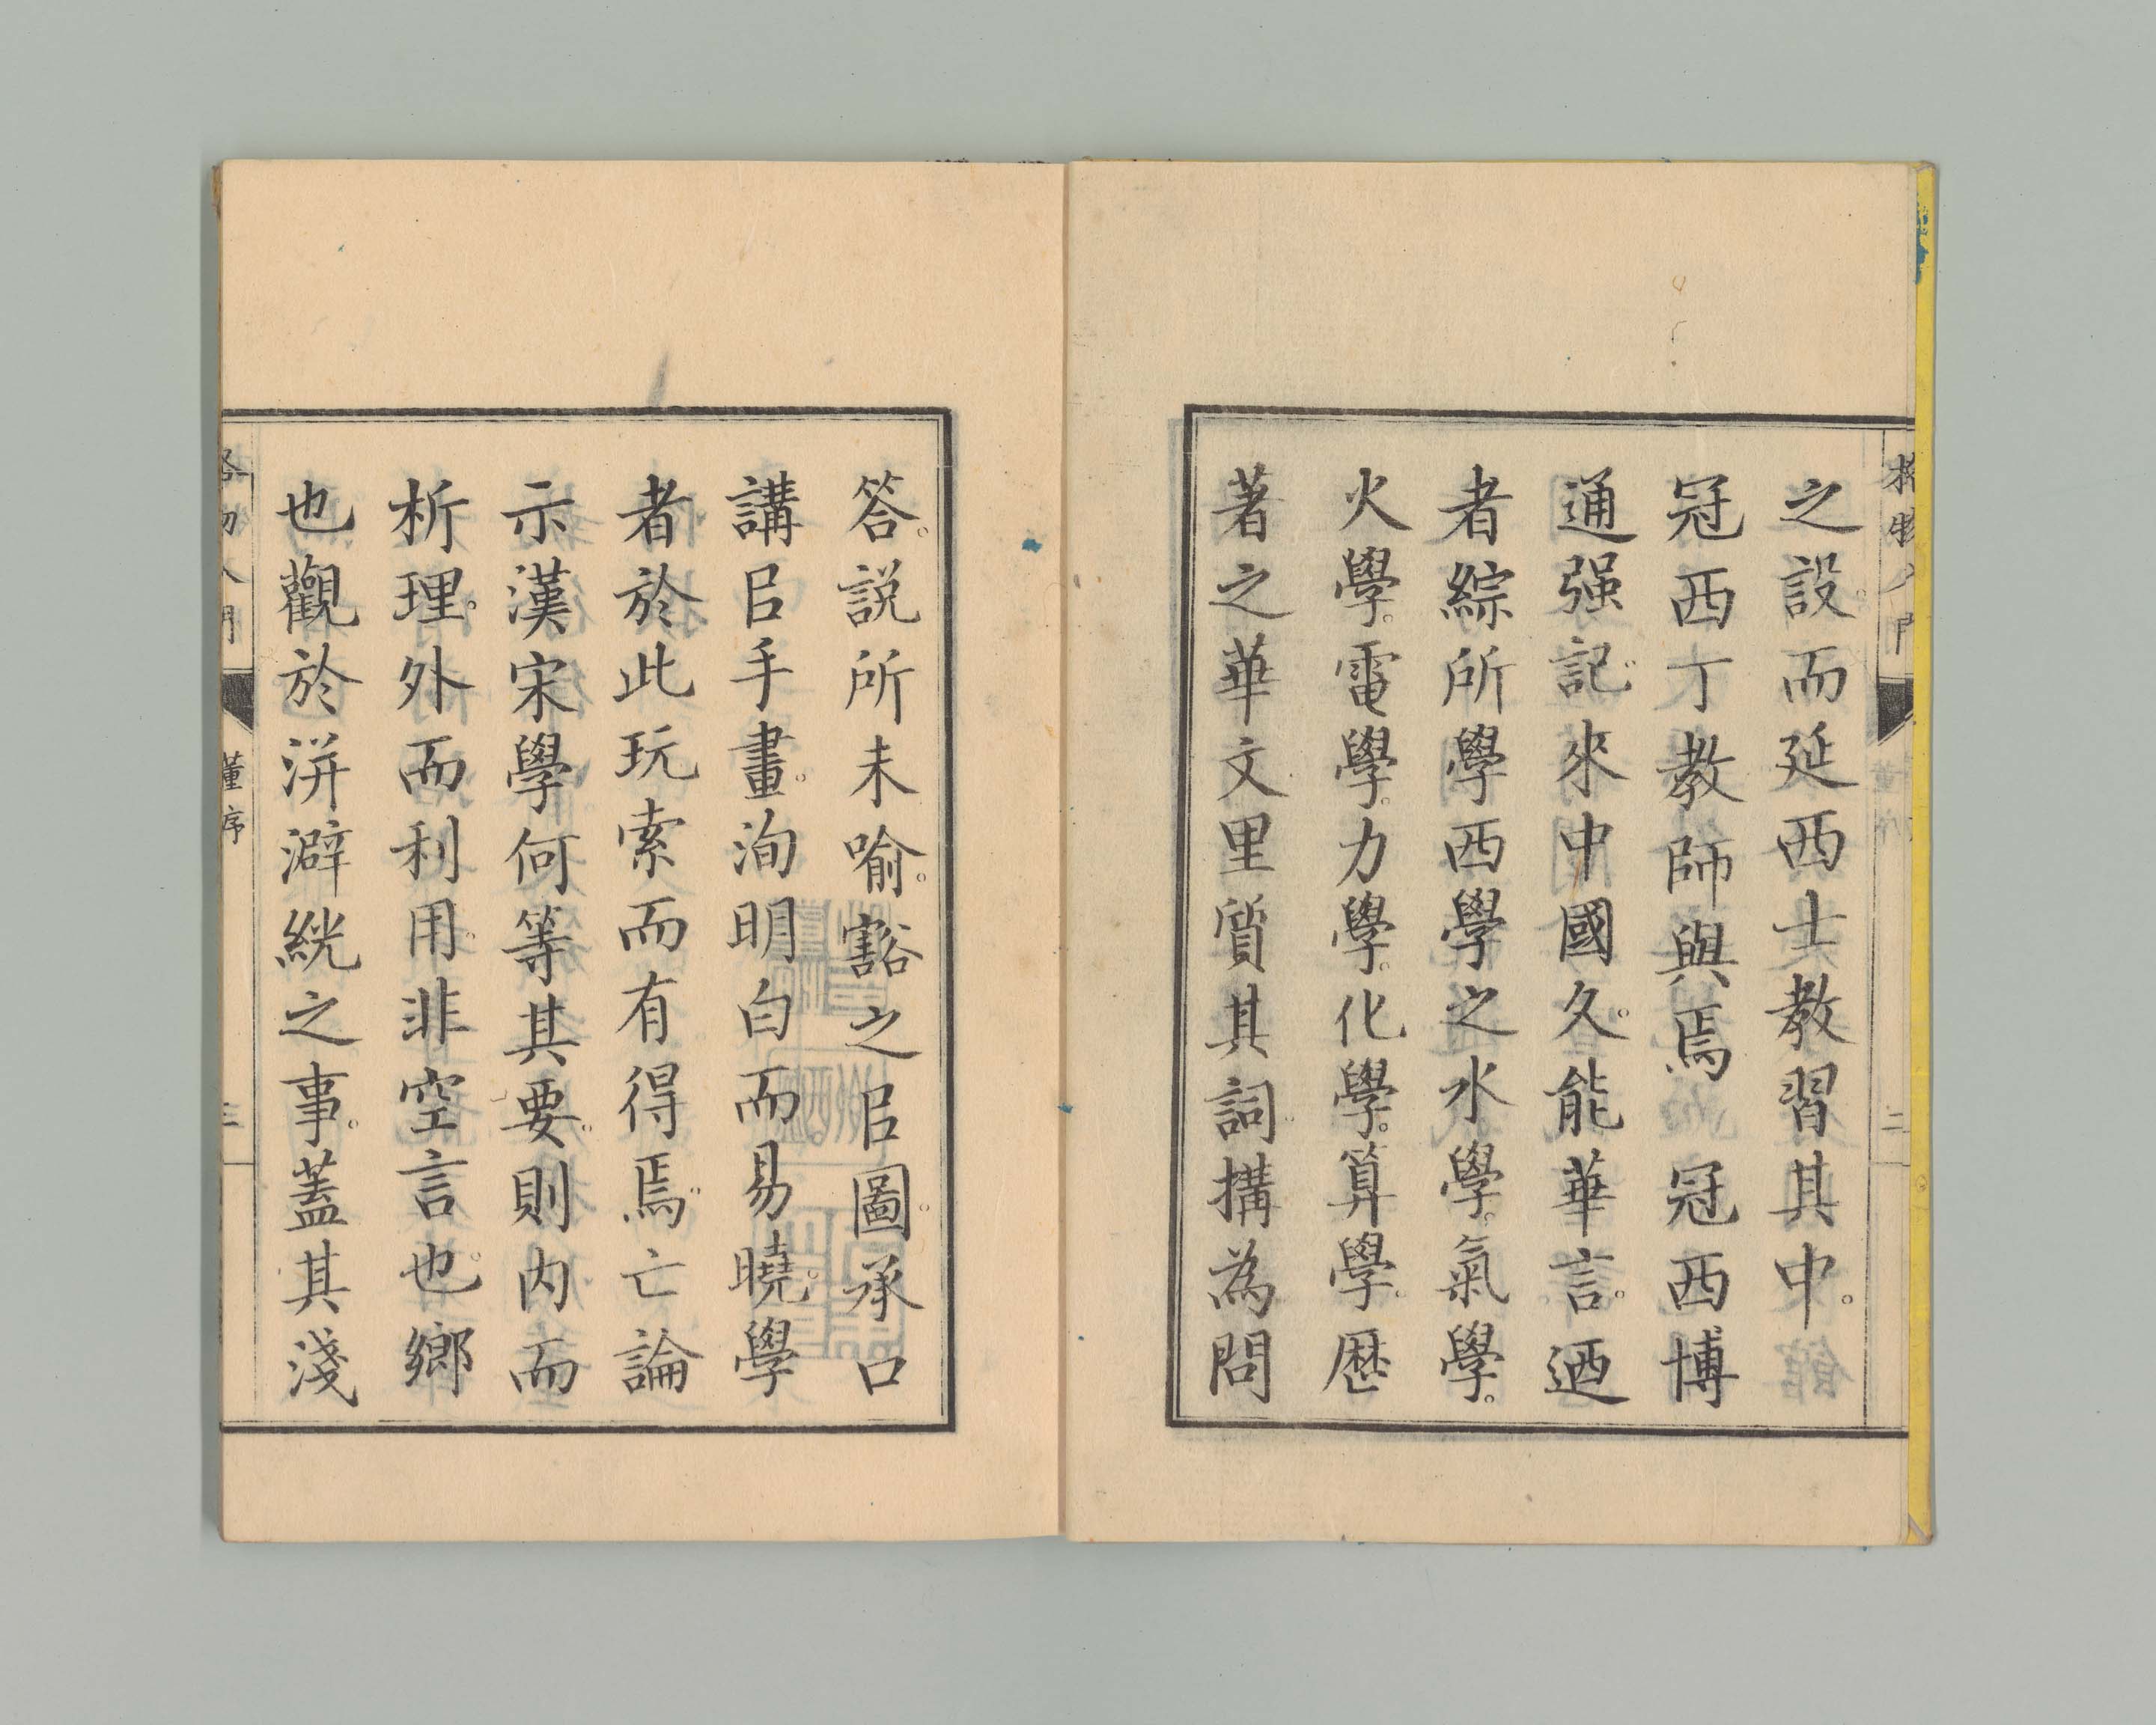 格物入門
二
之設而延西士教習其中。
冠西丁教師與焉冠西博
通强記來中國久。能華言。迺
者綜所學西學之水學。氣學。
火學。電學。力學。化學。算學。歴
著之華文里質其詞搆為問
答。説所未喻。豁之㠯圖。承口
講㠯手畫。洵明白而易曉。學
者於此玩索而有得焉。亡論
示漢宋學何等其要。則内而
析理。外而利用。非空言也。鄉
也觀於洴澼絖之事。蓋其淺
格物入門
董序
三